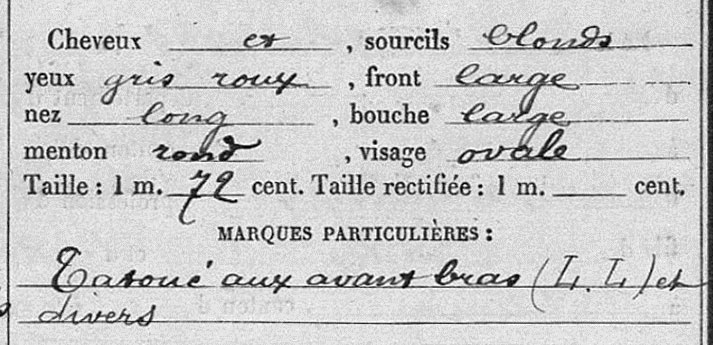 Cheveux et , sourcils blonds
yeux gris roux , front large
nez long , bouche large
menton rond , visage ovale
Taille : 1 m. 72 cent. Taille rectifiée : 1 m. cent.
MARQUES PARTICULIÈRES :
Tatoué aux avant bras (L. L.) et
divers